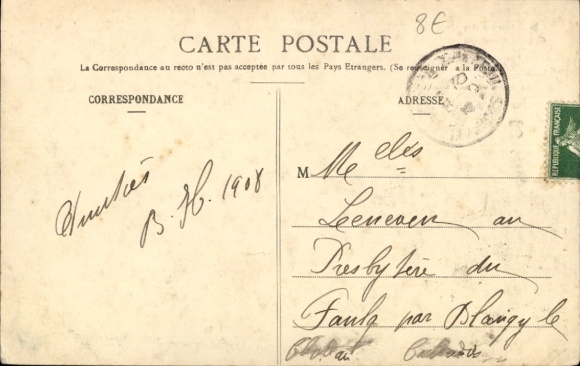 8€
CARTE POSTALE
La Correspondance au recto n'est pas acceptée par tous les Pays Etrangers. (Se renseigner à la Poste)
CORRESPONDANCE
ADRESSE
REPUBLIQUE FRANÇAISE
M Melles
Leeneven au
Presbytère du
Faulq par Blangy le
Calvados
Amitiés
B. H. 1908